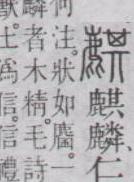 麒麒麟、仁
何注。狀如麕。一
麟者木精。毛詩
獸。土爲信。信禮